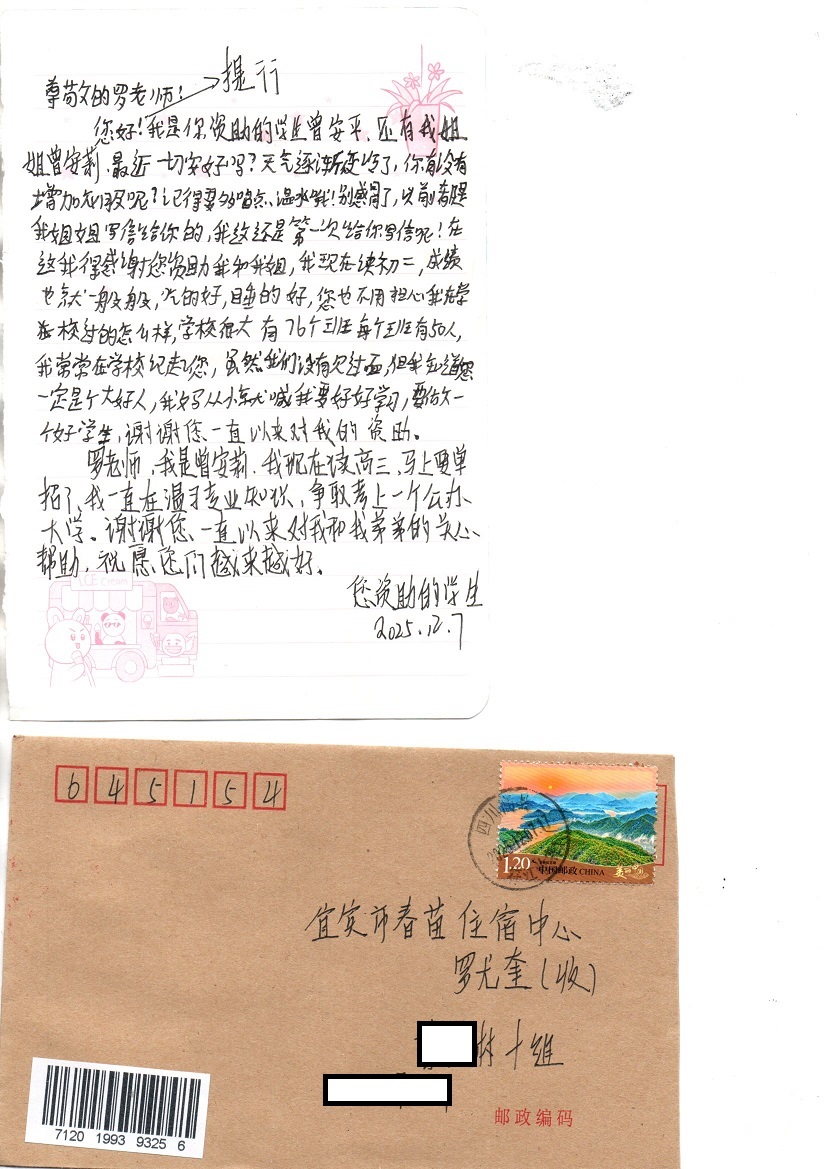 提行
尊敬的罗老师!
您好!我是你资助的学生曾安平、还有我姐
姐曾安莉.最近一切安好吗?天气逐渐变冷了,你有没有
增加衣服呢?记得要多喝点温水哦!别感冒了,以前都是
我姐姐写信给你的,我这还是第一次给你写信呢!在
这我得感谢您资助我和我姐,我现在读初二,成绩
也就一般般,吃的好,睡的好,您也不用担心我在学
校过的怎么样,学校很大 有76个班 每个班有50人,
我常常在学校纪念您,虽然我们没有见过面,但我知道您
一定是个大好人,我妈从小就喊我要好好学习,要做一
个好学生,谢谢您一直以来对我的资助。
罗老师,我是曾安莉.我现在读高三,马上要单
招了,我一直在温习专业知识、争取考上一个公办
大学。谢谢您、一直以来对我和我弟弟的关心、
帮助,祝愿您们越来越好。
您资助的学生
2025.12.7
ICE Cream
645154
四川
1.20
中国邮政 CHINA
宜宾市春苗住宿中心
罗尤奎(收)
林十组
邮政编码
7120 1993 9325 6